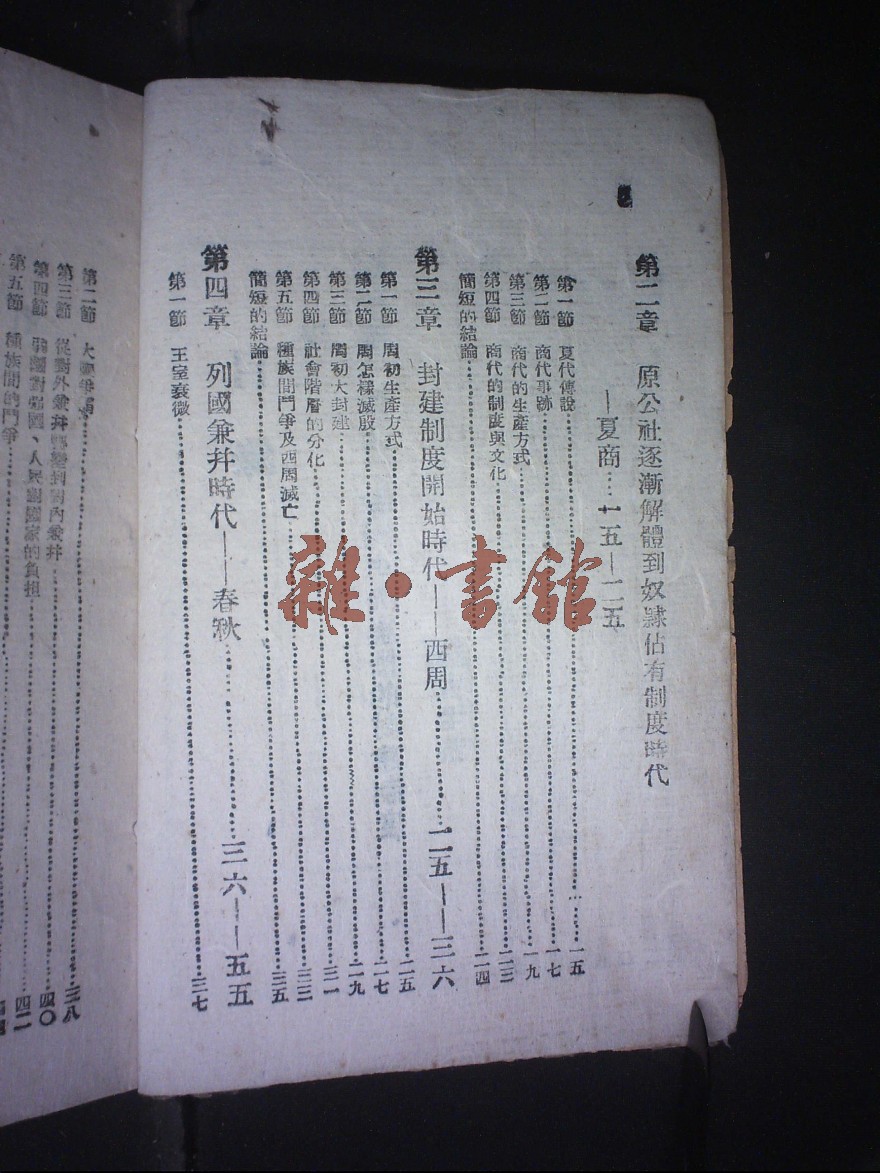 第二章 原公社逐漸解體到奴隷佔有制度時代
—夏商…十五—二五
第一節 夏代傳說……一五
第二節 商代事跡……一七
第三節 商代的生產方式……一九
第四節 商代的制度與文化……二三
簡短的結論……二四
第三章 封建制度開始時代——西周……二五——三六
第一節 周初生產方式……二五
第二節 周怎樣滅殷……二七
第三節 周初大封建……二九
第四節 社會階層的分化……三一
第五節 種族間鬥爭及西周滅亡……三三
簡短的結論……三五
第四章 列國兼并時代——春秋……三六——五五
第一節 王室衰微……三七
第二節 大國爭霸……三八
第三節 從對外兼并轉變到國內兼并……四〇
第四節 弱國對強國、人民對國家的負担……四二
第五節 種族間的鬥爭
雜·書館